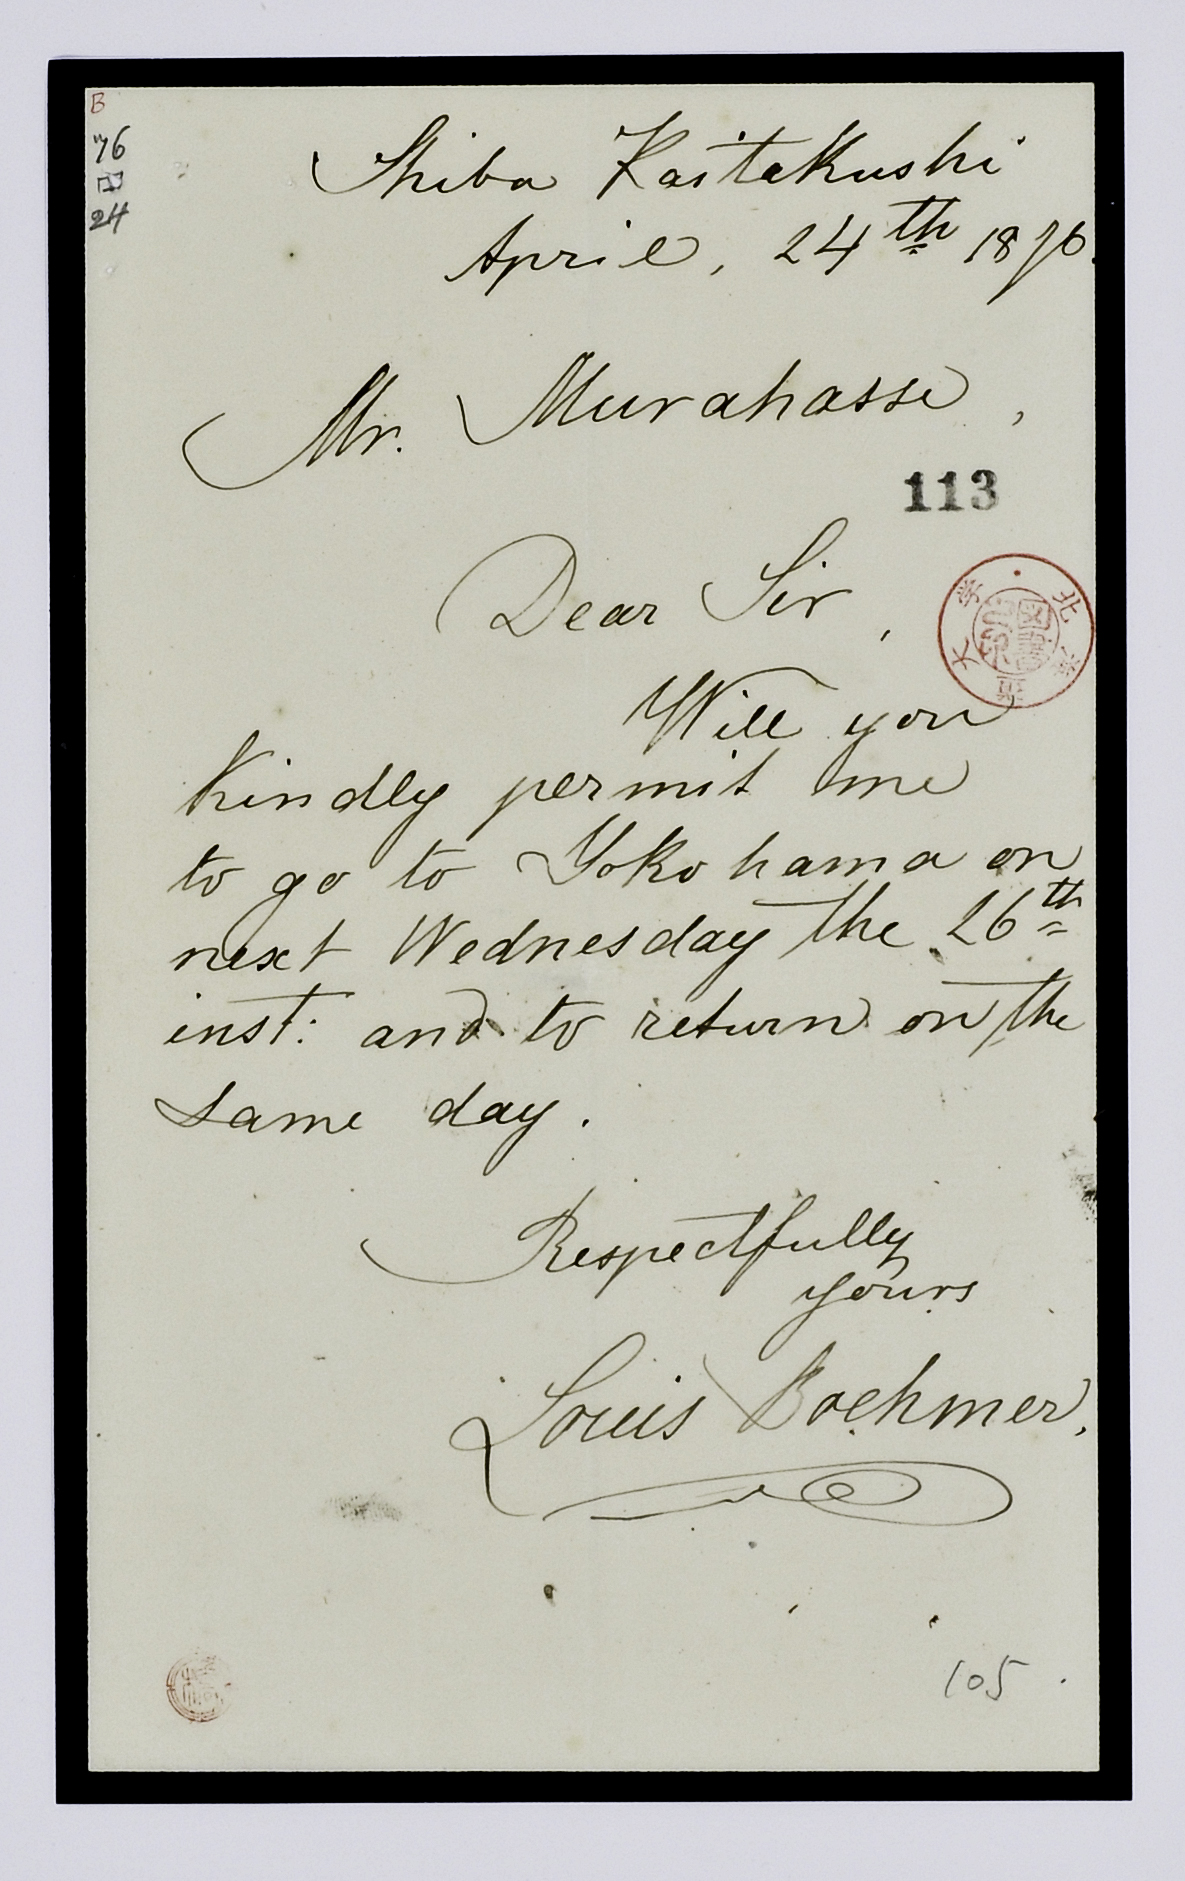 B
76
24
Shiba Kaitakushi
April, 24th 1876.
Mr. Murahasse,
113
Dear Sir,
北海道大学
図書
Will you
Kindly permit me
to go to Yokohama on
next Wednesday the 26th
inst: and to return on the
same day.
Respectfully
yours
Louis Boehmer.
105